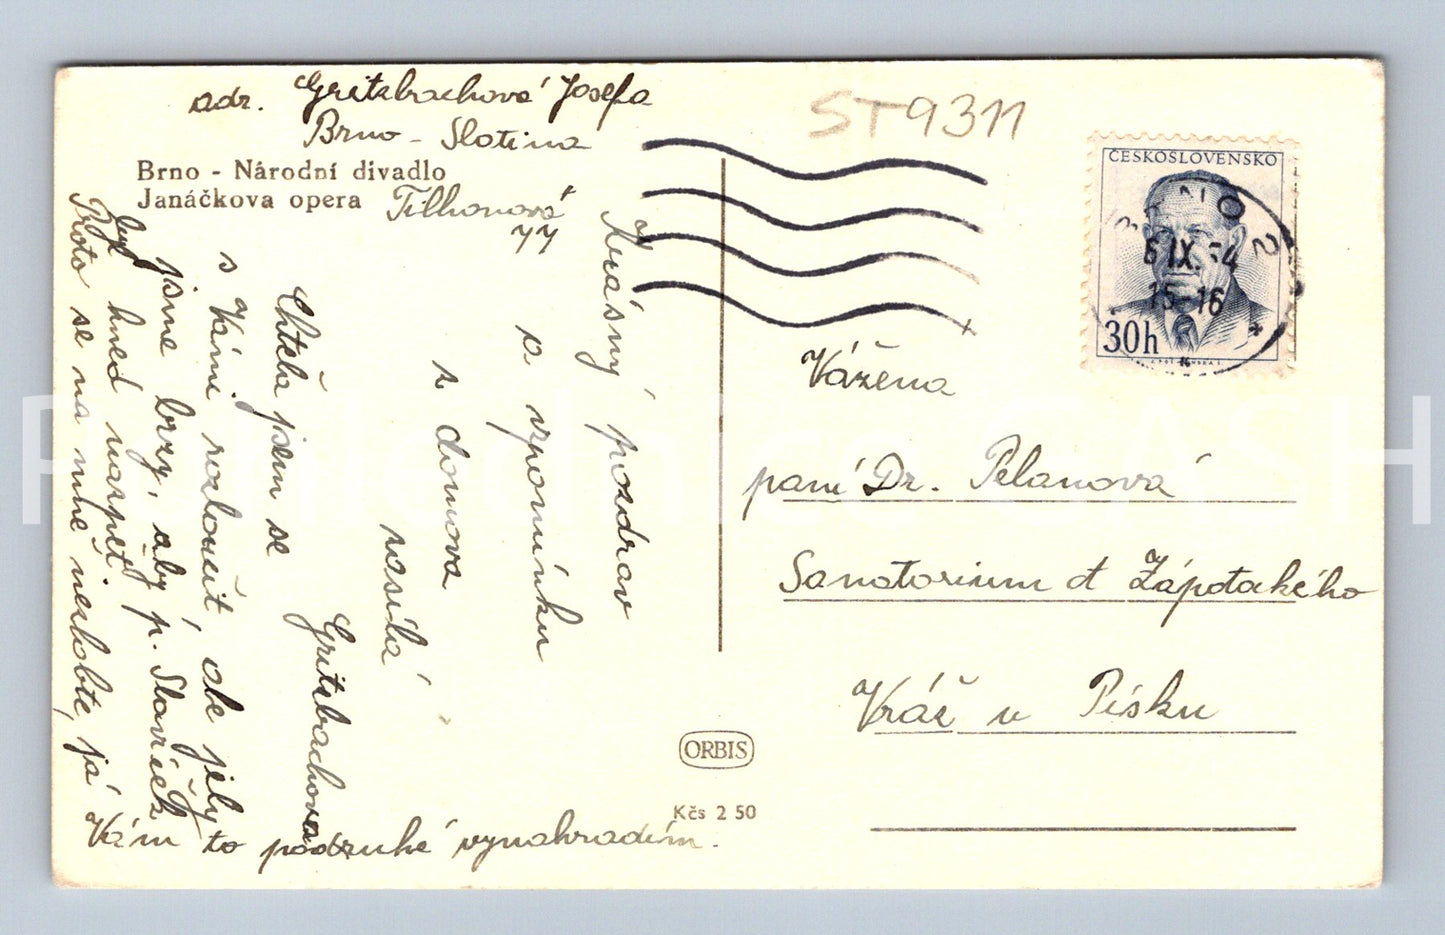 adr. Gritzbachová Josefa
Brno - Slatina
Brno - Národní divadlo
Janáčkova opera
Tilhonová
77
ST9311
ČESKOSLOVENSKO
BRNO 2
6 IX. 54
15-16
30h
Krásný pozdrav
a vzpomínku
z domova
zasílá
Gritzbachová
Chtěla jsem se
s Vámi rozloučit, ale jely
jsme brzy, aby p. Slavíček
byl hned naspět.
Proto se na mne nezlobte, já
Vám to podruhé vynahradím.
Vážená
paní Dr. Pelanová
Sanatorium A Zápotockého
Vráž u Písku
ORBIS
Kčs 2 50